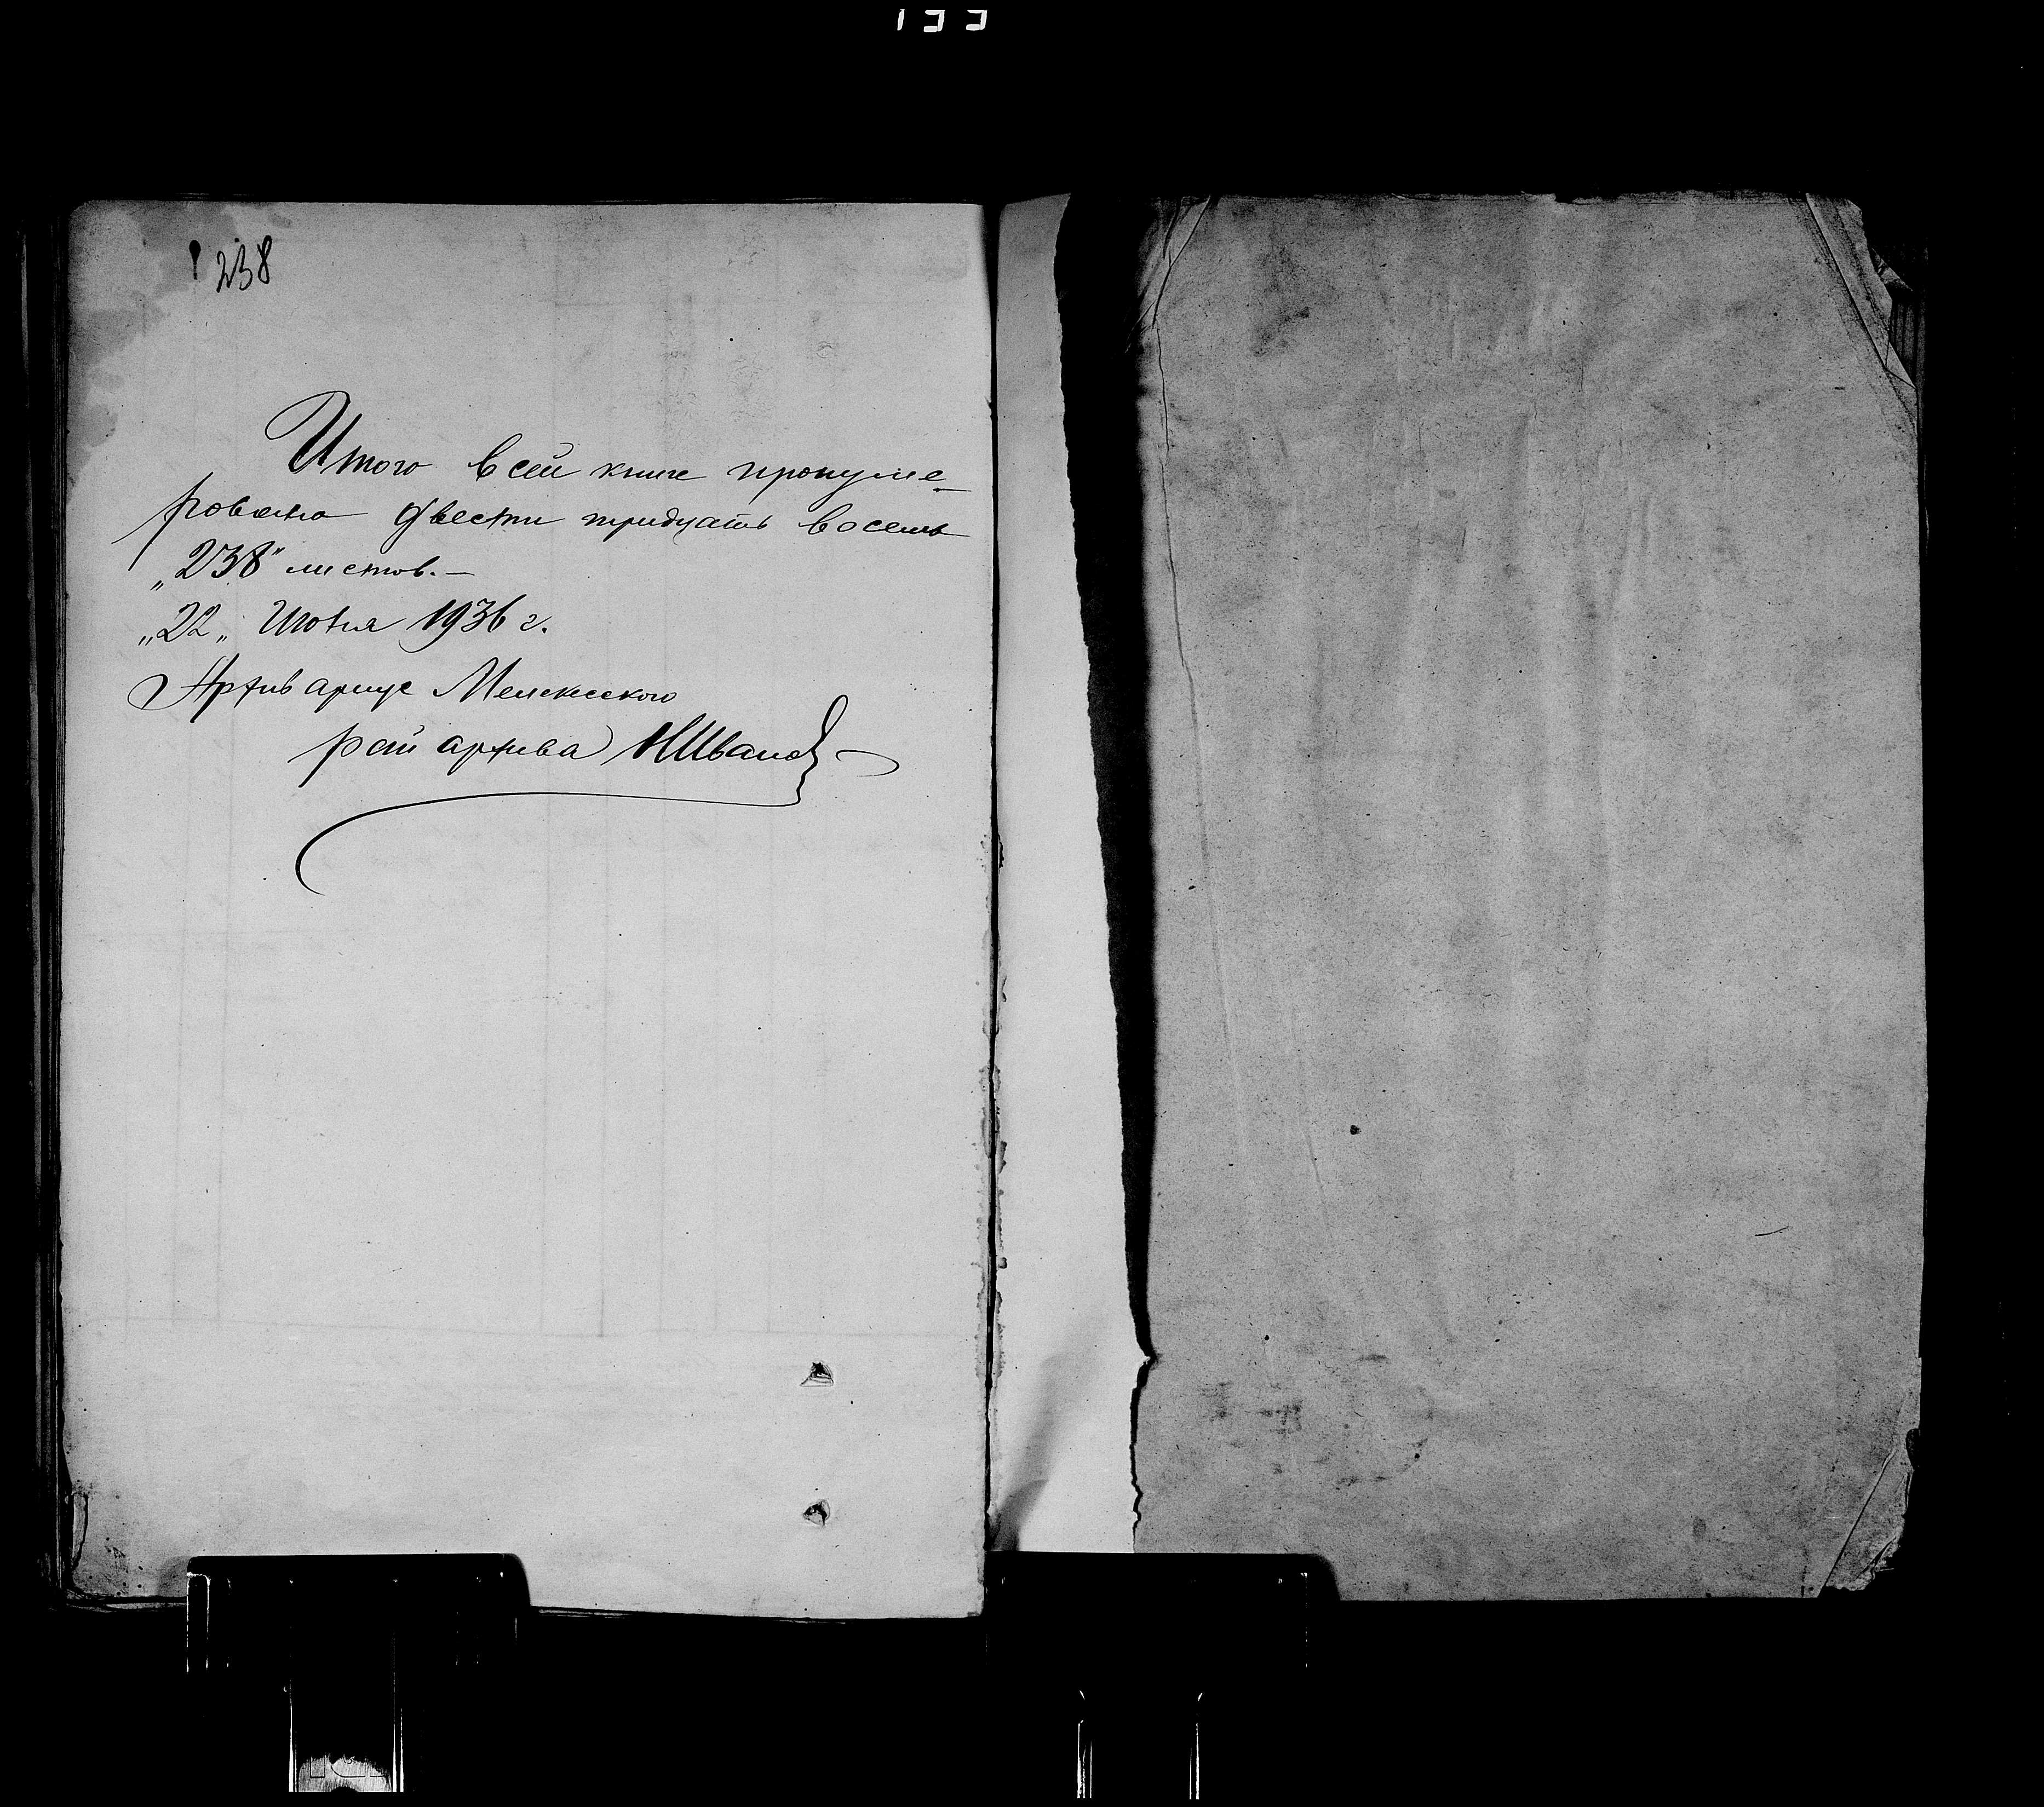 133
238
Итого в сей книге пронуме-
ровано двести тридцать восемь
„238" листов.—
„22„ Июня 1936 г.
Архивариус Мелекесского
рай архива НИванов